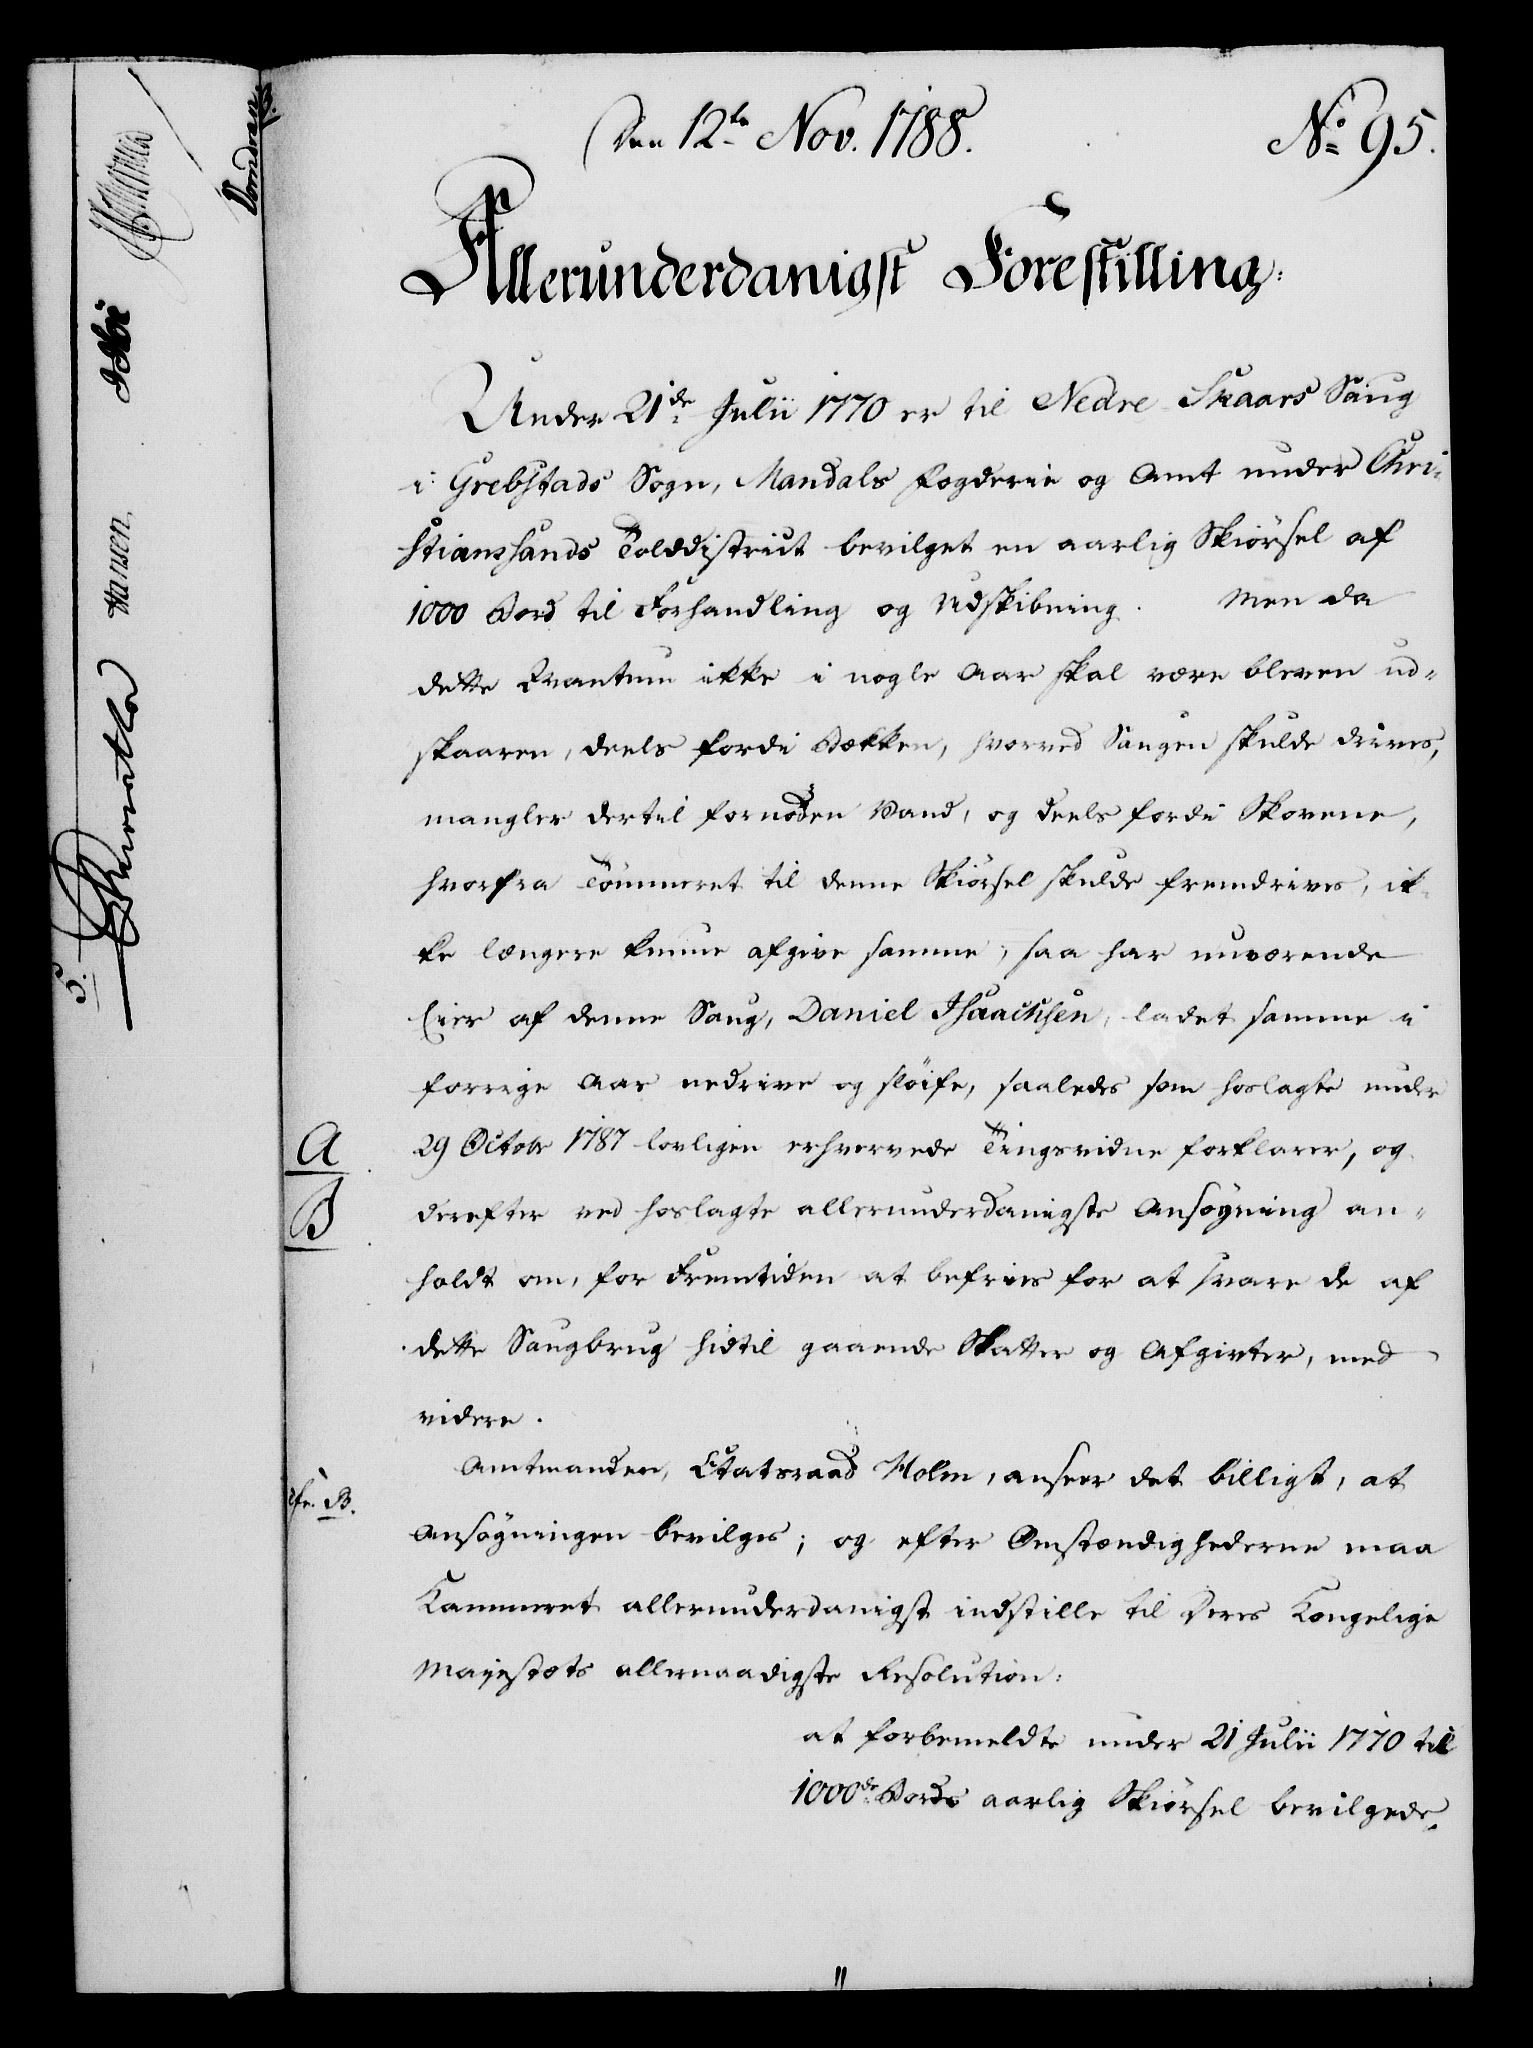 Den 12te Nov. 1788.
No 95.
Allerunderdanigst Forestilling:
Under 21de Julii 1770 er til Nedre Skaars Saug
i Grebstads Sogn, Mandals Fogderie og Amt under Chri-
stianssands Tolddistrict bevilget en aarlig Skiörsel af
1000 Bord til Forhandling og Udskibning. Men da
dette Qvantum ikke i nogle Aar skal være bleven ud-
skaaren, deels fordi Bækken, hvorved Saugen skulde drives,
mangler dertil fornøden Vand, og deels fordi Skovene,
hvorfra Tömmeret til denne Skiörsel skulde fremdrives, ik-
ke længere kunne afgive samme, saa har nuværende
Eier af denne Saug, Daniel Isaachsen, ladet samme i
forrige Aar nedrive og slöife, saaledes som hoslagte under
A
29 Octobr 1787 lovligen erhvervede Tingsvidne forklarer, og
B
derefter ved hoslagte allerunderdanigste Ansøgning an-
holdt om, for Fremtiden at befries for at svare de af
dette Saugbrug hidtil gaaende Skatter og Afgivter, med
videre.
Amtmanden, Etatsraad Holm, anseer det billigt, at
cfr. B.
Ansøgningen bevilges; og efter Omstændighederne maa
Kammeret allerunderdanigst indstille til Deres Kongelige
Majestæts allernaadigste Resolution:
at forbemeldte under 21 Julii 1770 til
1000de Bords aarlig Skiörsel bevilgede
Hansen.
5.